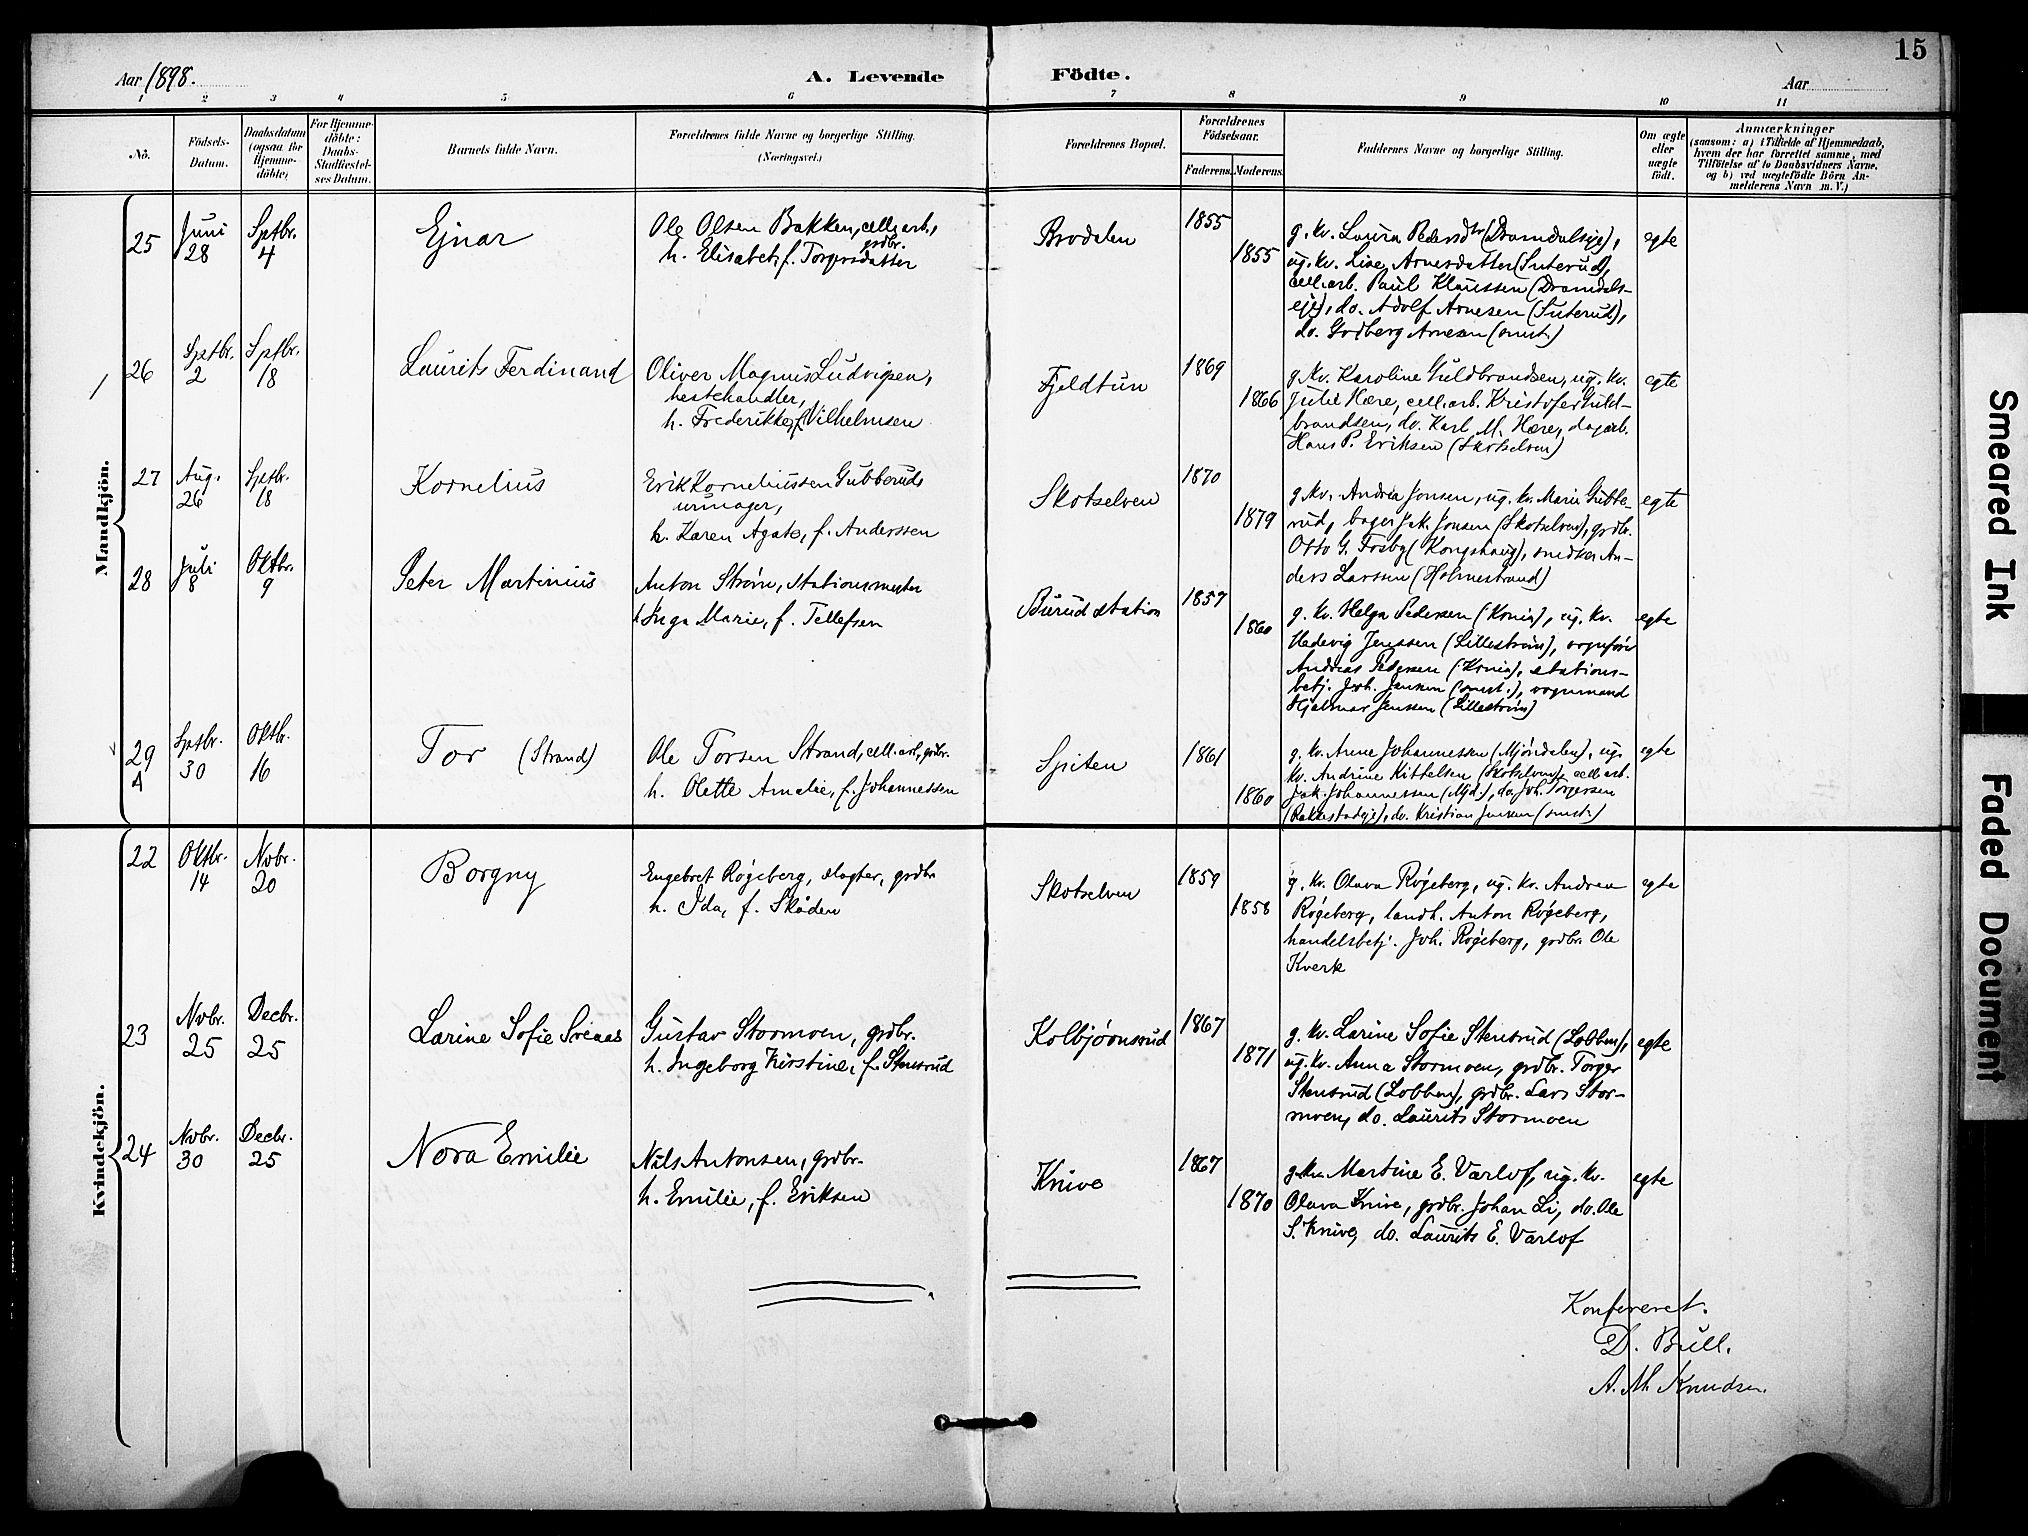 15
Aar 1898.
A. Levende Födte.
Aar
1 2 3 4 5 6 7 8 9 10 11
No.
Födsels-Datum.
Daabsdatum (ogsaa for Hjemme-döbte)
For Hjemme-döbte: Daabs-Stadfæstel-ses Datum.
Barnets fulde Navn.
Forældrenes fulde Navne og borgerlige Stilling.
(Næringsvei.)
Forældrenes Bopæl.
Forældrenes Födselsaar.
Faderens. Moderens.
Faddernes Navne og borgerlige Stilling.
Om ægte eller uægte födt.
Anmærkninger
(saasom: a) i Tilfælde af Hjemmedaab,
hvem der har forrettet samme, med
Tilföielse af to Daabsvidners Navne,
og b) ved uægtefödte Börn An-
melderens Navn m. V.)
Mandkjön.
25 Juni 28 Sptbr. 4
Ejnar
Ole Olsen Bakken, cell.arb.,
grdbr.
h. Elisabet, f. Torgersdatter
Brodalen
1855
1855
g. kv. Laura Pedersdtr (Dramdalseje),
ug. kv. Lise Arnesdatter (Suterud),
cell.arb. Paul Klaussen (Dramdals-
eje), do. Adolf Arnesen (Suterud),
do. Godberg Arnesen (smst.)
egte
26 Sptbr. 2 Sptbr. 18
Laurits Ferdinand
Oliver Magnus Ludvigsen,
hestehandler,
h. Frederikke, f. Vilhelmsen
Fjeldtun
1869
1866
g. kv. Karoline Guldbrandsen, ug. kv.
Julie Hære, cell.arb. Kristofer Guld-
brandsen, do. Karl M. Hære, dagarb.
Hans P. Eriksen (Skotselven)
egte
27 Aug. 26 Sptbr. 18
Kornelius
Erik Korneliussen Gubberud,
urmager,
h. Karen Agate, f. Anderssen
Skotselven
1870
1879
g. kv. Andrea Jonsen, ug. kv. Marie Gubbe-
rud, bager Jak. Jonsen (Skotselven), grdbr.
Otto G. Fosby (Kongshaug), snedker An-
ders Larssen (Holmestrand)
egte
28 Juli 8 Oktbr. 9
Peter Martinius
Anton Strøm, stationsmester
h. Inga Marie, f. Tellefsen
Burud station
1857
1860
g. kv. Helga Pedersen (Krnia), ug. kv.
Hedevig Jenssen (Lillestrøm), vognfører
Andreas Pedersen (Krnia), stations-
betj. Joh. Jensen (smst.), vognmand
Hjalmar Jenssen (Lillestrøm)
egte
29 Sptbr. 30 Oktbr. 16
Tor (Strand)
Ole Torsen Strand, cell.arb, grdbr.
h. Olette Amalie, f. Johannessen
Spiten
1861
1860
g. kv. Anne Johannessen (Mjøndalen), ug.
kv. Andrine Kittelsen (Skotselven), cell.arb.
Jak. Johannessen (Mjd.), do. Joh. Torgersen
(Rakkestadeje), do. Kristian Jensen (smst.)
egte
Kvindekjön.
22 Oktbr. 14 Novbr. 20
Borgny
Engebret Røgeberg, slagter, grdbr
h. Ida, f. Skåden
Skotselven
1859
1858
g. kv. Olava Røgeberg, ug. kv. Andrea
Røgeberg, landh. Anton Røgeberg,
handelsbetj. Joh. Røgeberg, grdbr. Ole
Kverk
egte
23 Novbr. 25 Decbr. 25
Larine Sofie Sveaas
Gustav Stormoen, grdbr.
h. Ingeborg Kirstine, f. Stensrud
Kolbjørnsrud
1867
1871
g. kv. Larine Sofie Stensrud (Lobben),
ug. kv. Anna Stormoen, grdbr. Torger
Stensrud (Lobben), grdbr. Lars Stor-
moen, do. Laurits Stormoen
egte
24 Novbr. 30 Decbr. 25
Nora Emilie
Nils Antonsen, grdbr.
h. Emilie, f. Eriksen
Knive
1867
1870
g. kv. Martine E. Varlof, ug. kv.
Olava Knive, grdbr. Johan Li, do. Ole
S. Knive, do. Laurits E. Varlof
egte
Konfereret.
D. Bull.
A. M. Knudsen.
Smeared Ink
Faded Document